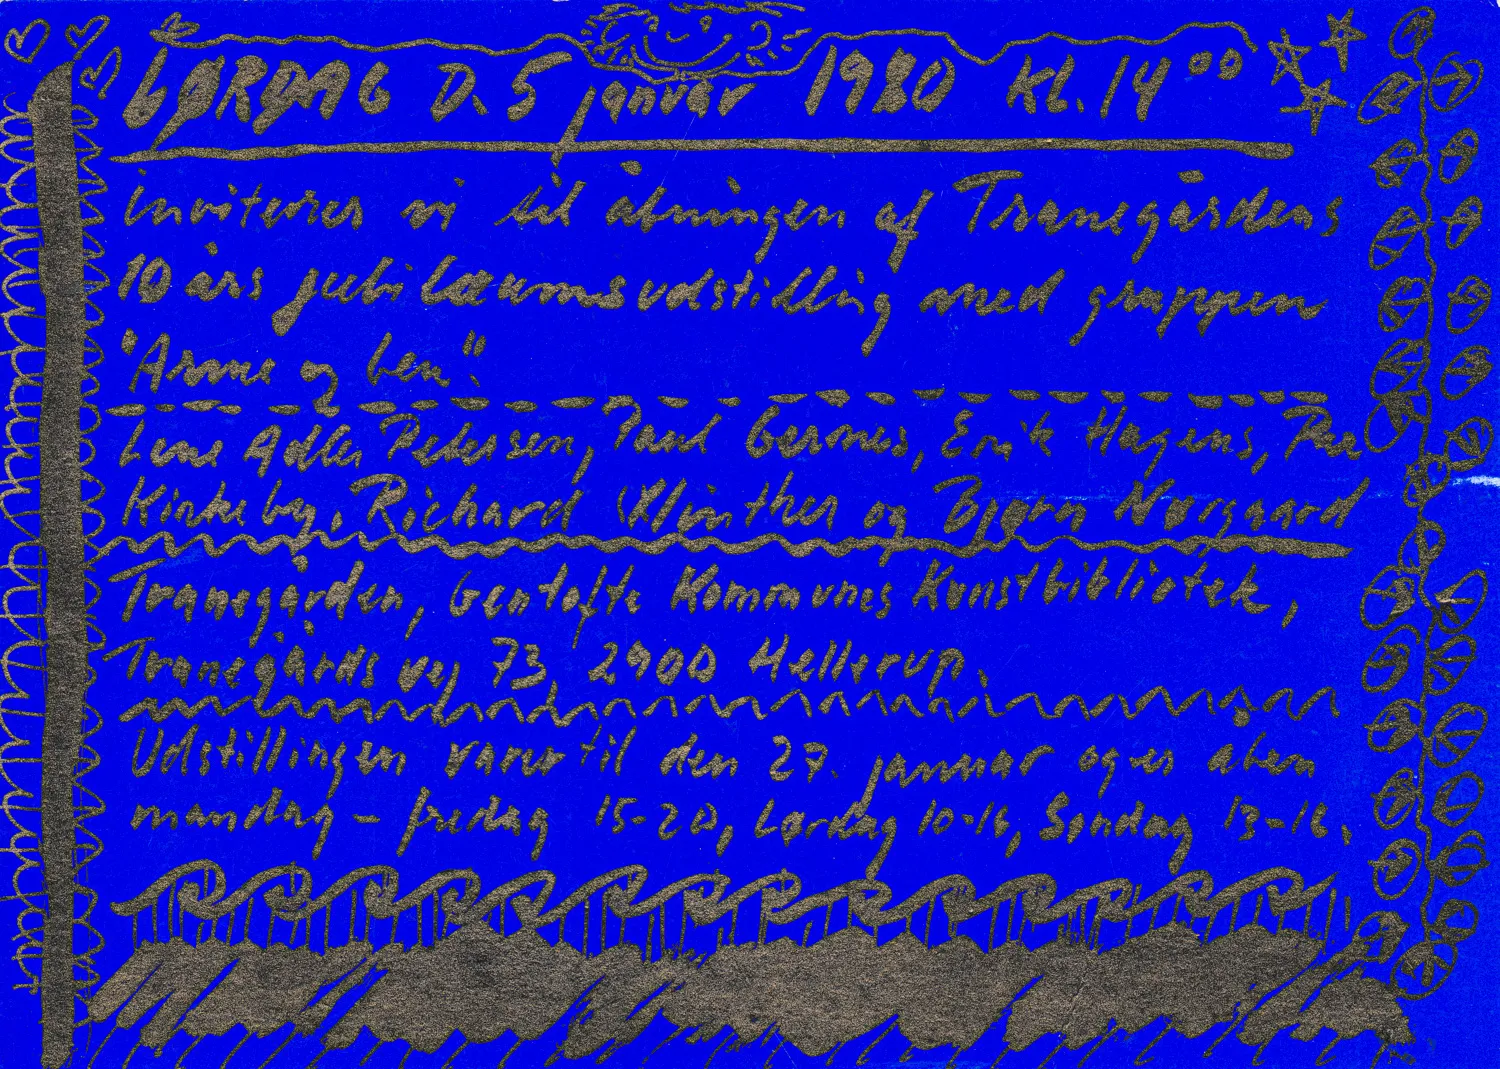 LØRDAG D. 5 januar 1980 Kl. 14 00
inviterer vi til åbningen af Tranegårdens
10 års jubilæumsudstilling med gruppen
"Arme og ben".
Lene Adler Petersen, Paul Gernes, Erik Hagens, Per
Kirkeby, Richard Winther og Bjørn Nørgaard
Tranegården, Gentofte Kommunes Kunstbibliotek,
Tranegårdsvej 73, 2900 Hellerup.
Udstillingen varer til den 27. januar og er åben
mandag - fredag 15-20, Lørdag 10-16, Søndag 13-16.